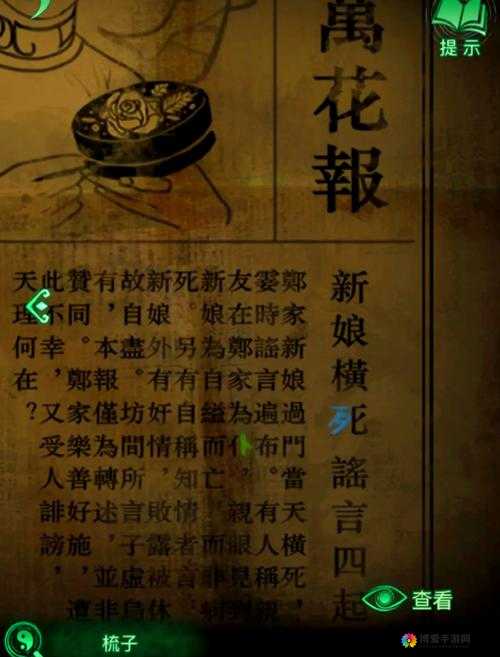 提示
萬花報
新娘橫死 謠言四起
鄭家新娘過門當天橫死，
霎時謠言遍布。有人稱親
友在鄭家為仆，親眼見到
新娘為自縊而亡，而非
死。另有自稱知情者言：
新娘外有奸情，敗露被休
故自盡。坊間所言子虛烏
有，本報僅為轉述，並非
贊同。鄭家樂善好施，遭
此不幸，又受人誹謗，
天理何在？
查看
梳子
博爱手游网